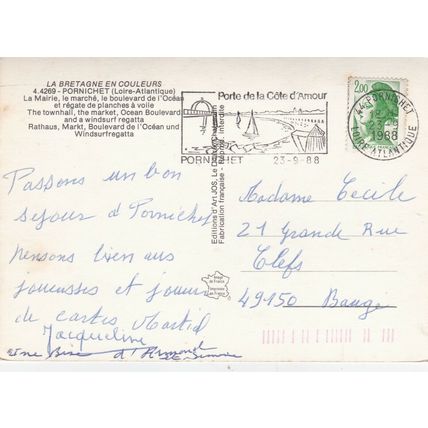 LA BRETAGNE EN COULEURS
4.4269 - PORNICHET (Loire-Atlantique)
La Mairie, le marché, le boulevard de l'Océan
et régate de planches à voile
The townhall, the market, Ocean Boulevard
and a windsurf regatta
Rathaus, Markt, Boulevard de l'Océan und
Windsurfregatta
Porte de la Côte d'Amour
PORNICHET 23-9-88
2,00
44 PORNICHET
1988
LOIRE ATLANTIQUE
Editions d'Art JOS, Le
Fabrication française - Reproduction interdite
Passons un bon
séjour à Pornichet
pensons bien aux
joueuses et joueurs
de cartes
Jacqueline
Bise d'Armand
Simone
Madame Cecile
21 Grande Rue
Clefs
49150 Bauge